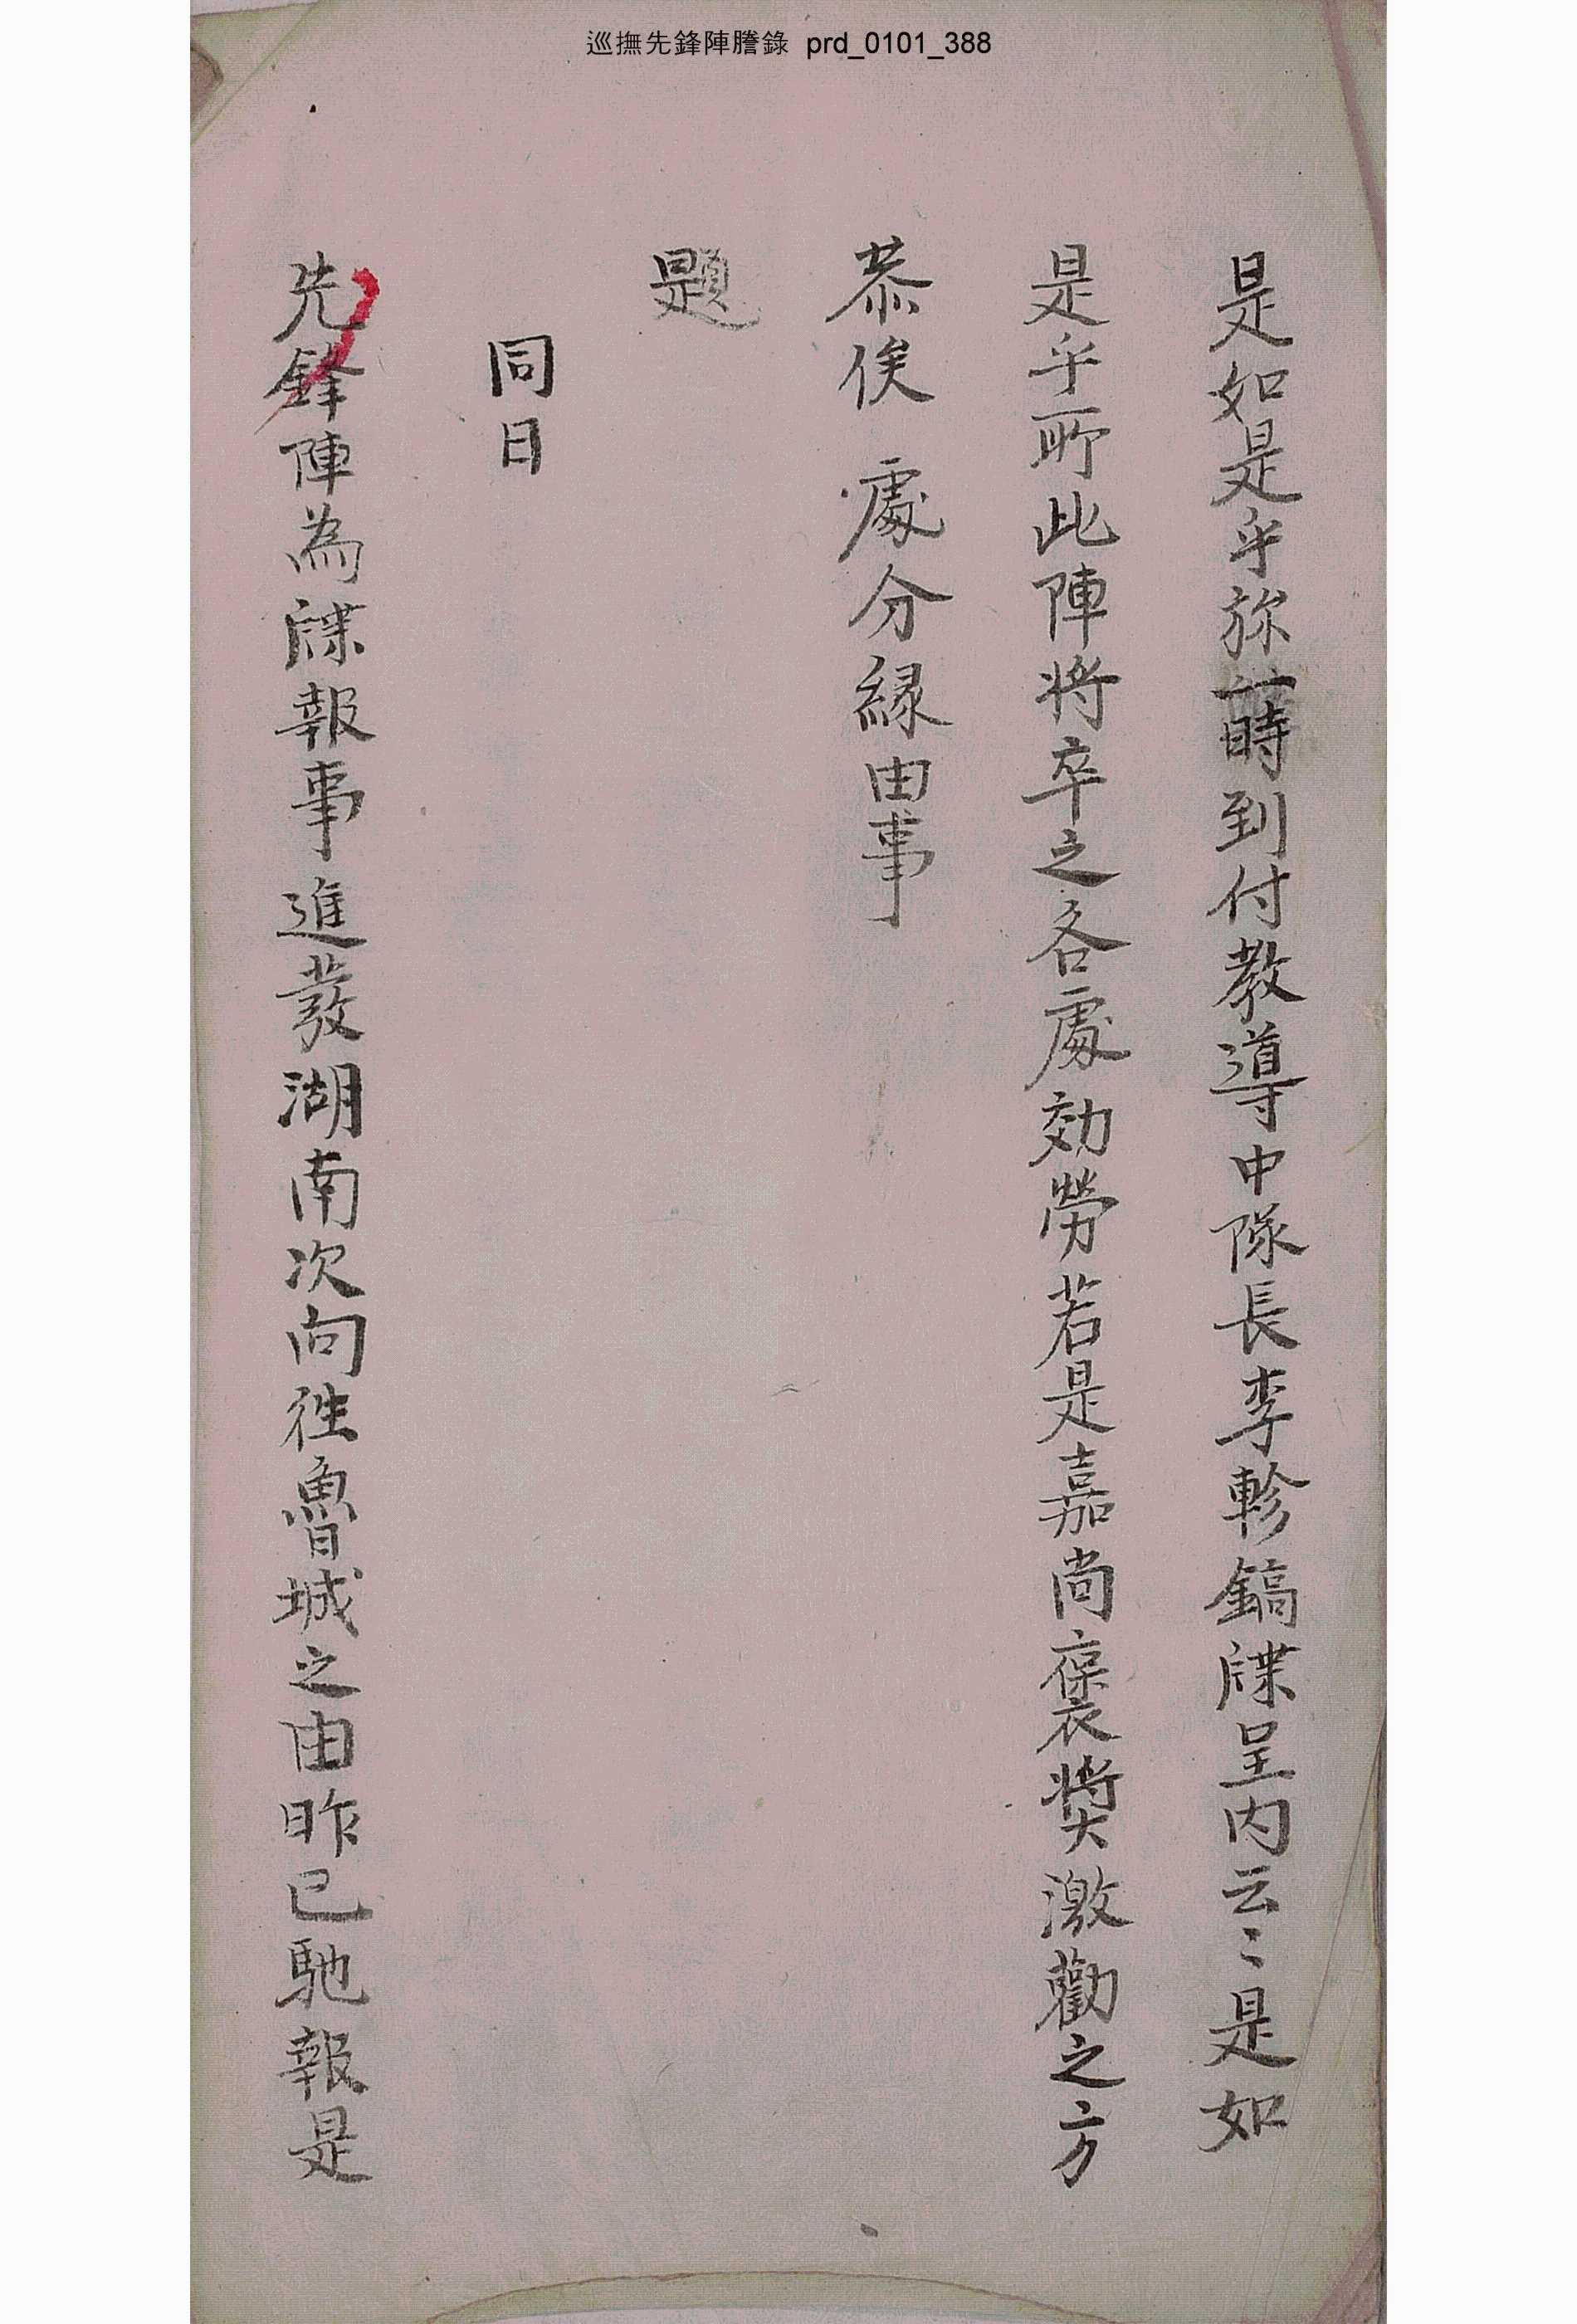 巡撫先鋒陣謄錄 prd_0101_388
是如是乎旀一時到付教導中隊長李軫鎬牒呈內云〻是如
是乎所此陣將卒之各處効勞若是嘉尚褒奬激勸之方
恭俟 處分緣由事
題
同日
先鋒陣為牒報事進發湖南次向徃魯城之由昨已馳報是